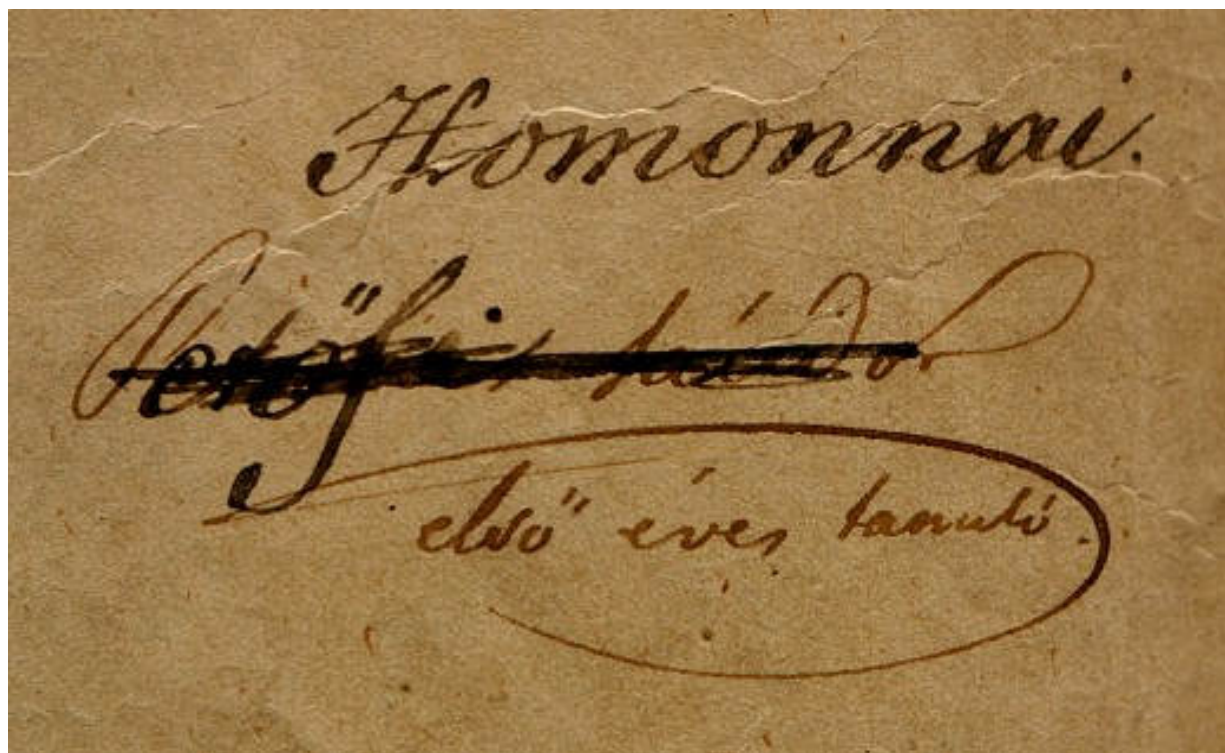 Homonnai.
Petőfi
első éves tanuló.